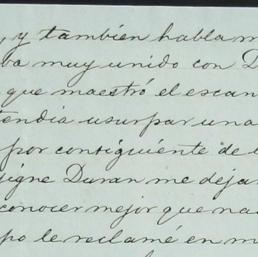 , y tambien habla m
ba muy unido con D
que maestró el escan
tendia usurpar una
por consiguiente de
signe Duran me deja
conocer mejor que na
po le reclamé en m